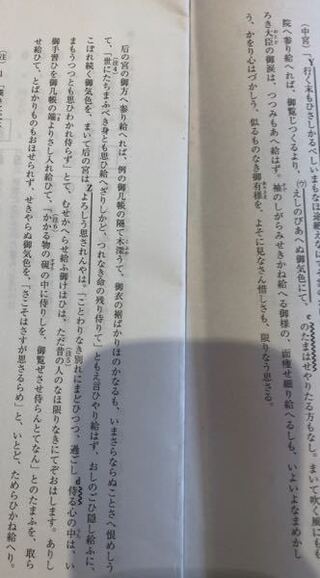 (中宮)「Y行く末もひさしかるべしいまもなほ
院へ参り給へれば、御覧じつくるより、(ウ)えしのびあへぬ御気色にて、eのたまはせやりたる方もなし。まいて吹く風にもも
ろき大臣の御涙は、つつみもあへ給はず。袖のしがらみせきかね給へる御様の、面痩せ細り給へるしも、いよいよなまめかし
う、かをり心はづかしう、似るものなき御有様を、よそに見なさん惜しさも、限りなう思さる。
后の宮の御方へ参り給へれば、例の御几帳の隔て木深うて、御衣の裾ばかりほのかなるも、いまさらならぬことさへ恨めしう
て、(注4)「世にたちまふべき身とも思ひ給へざりしかど、つれなき命の残り侍りて」ともえ言ひやり給はず、おしのごひ隠し給ふに、
こぼれ続く御気色を、まいて后の宮はZよろしう思されんやは。「ことわりなき別れにまどひつつ、過ごしd侍る心の中は、い
まもうつつとも思ひわかれ侍らず」とて、むせかへらせ給ふ御けはひは、ただ昔の人のなほ限りなきにてぞおはします。ありし
御手習ひを御几帳の端よりさし入れ給ひて、「かかる物の硯の中に侍りしを、御覧ぜさせ侍らんとてなん」とのたまふを、取ら
せ給ひて、とばかりものもおほせられず、せきやらぬ御気色を、「さこそはさすが思さるらめ」と、いとど、ためらひかね給へり。